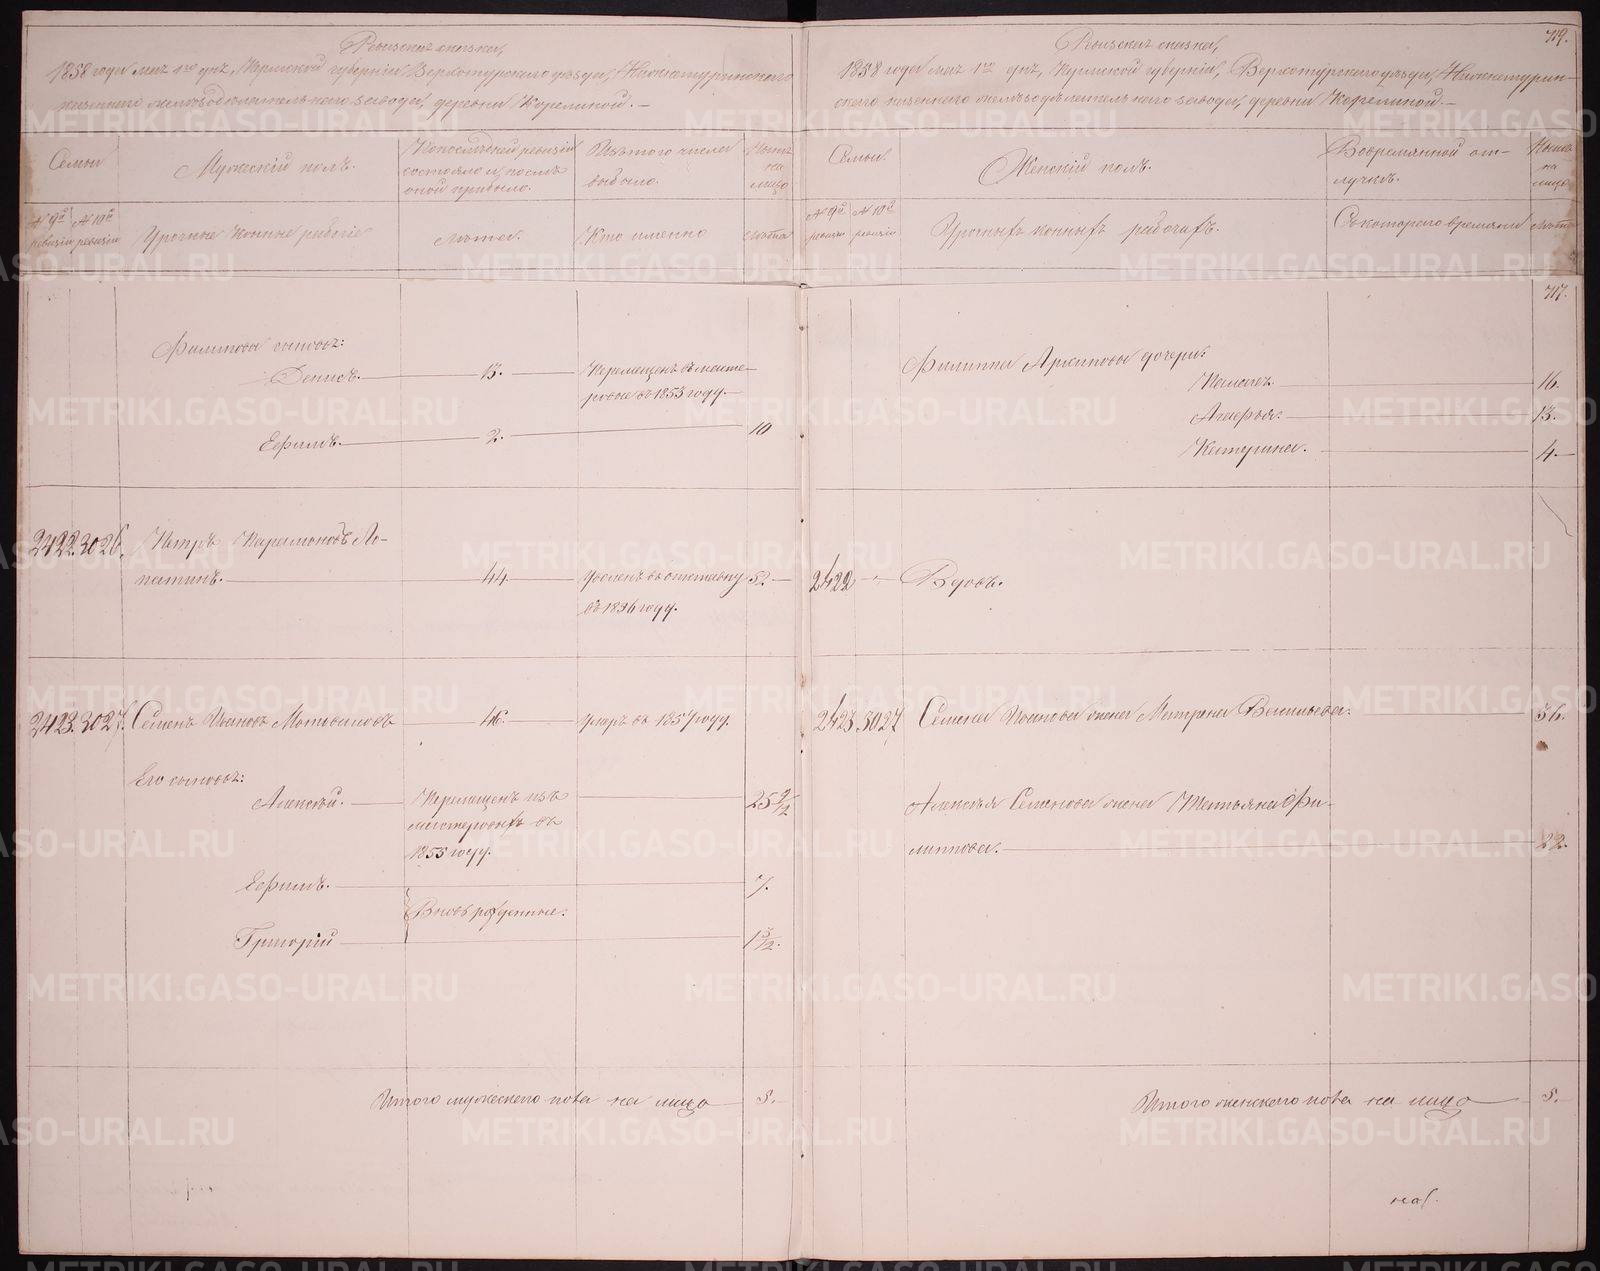 Ревизская сказка,
1858 года мая 1го дня, Пермской губернiи, Верхотурскаго уѣзда, Нижнетуринскаго
казеннаго желѣзодѣлательнаго завода, деревни Корелиной.—
Семьи
Мужескiй полъ.
По послѣдней ревизiи
состояло и послѣ
оной прибыло.
Изъ того числа
выбыло.
Нынѣ
на
лицо
№ 9й ревизiи
№ 10й ревизiи
Урочные конные рабочiе
Лѣта.
Кто именно
Лѣта
Филиповы сыновья:
Денисъ. 13.
Перемещенъ въ масте-
ровые въ 1853 году.
Ефимъ. 2. 10
2422. 3026. Петръ Парамоновъ Ло-
патинъ. 44. Уволенъ въ отставку 52.
въ 1856 году.
2423. 3027. Семенъ Ивановъ Мотовиловъ 46. умеръ въ 1857 году.
Его сыновья:
Алексѣй. Перемещенъ изъ 25 9/12
мастеровыхъ въ
1855 году.
Ефимъ. 7.
Вновь рожденные:
Григорiй 1 3/12.
Итого мужескаго пола на лицо 5.
719.
Ревизская сказка,
1858 года мая 1го дня, Пермской губернiи, Верхотурскаго уѣзда, Нижнетурин-
скаго казеннаго желѣзодѣлательнаго завода, деревни Корелиной.—
Семьи.
Женскiй полъ.
Во временной от-
лучкѣ.
Нынѣ
на
лицо
№ 9й ревизiи
№ 10й ревизiи
Урочныхъ конныхъ рабочихъ.
Съ котораго времени
Лѣта
717.
Филиппа Архипова дочери:
Пелагея. 16.
Агафья. 13.
Катерина. 4.
2422 Вдовъ.
2423. 3027 Семена Иванова жена Матрена Васильева. 56.
Алексѣя Семенова жена Татьяна Фи-
липпова. 22.
Итого женскаго пола на лицо 5.
METRIKI.GASO-URAL.RU